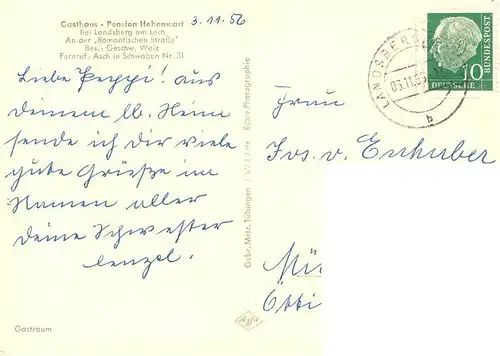 Gasthaus - Pension Hohenwart
bei Landsberg am Lech
An der „Romantischen Straße"
Bes.: Geschw. Welz
Fernruf: Asch in Schwaben Nr. 31
3.11.56
Liebe Peppi! aus
deinem lb. Heim
sende ich dir viele
gute Grüße im
Namen aller
deine Schwester
Gastraum
Gebr. Metz, Tübingen
Echte Photographie
LANDSBERG
03.11.56
b
10
DEUTSCHE
BUNDESPOST
Frau
Jos. v. Enhuber
Mü
Otti